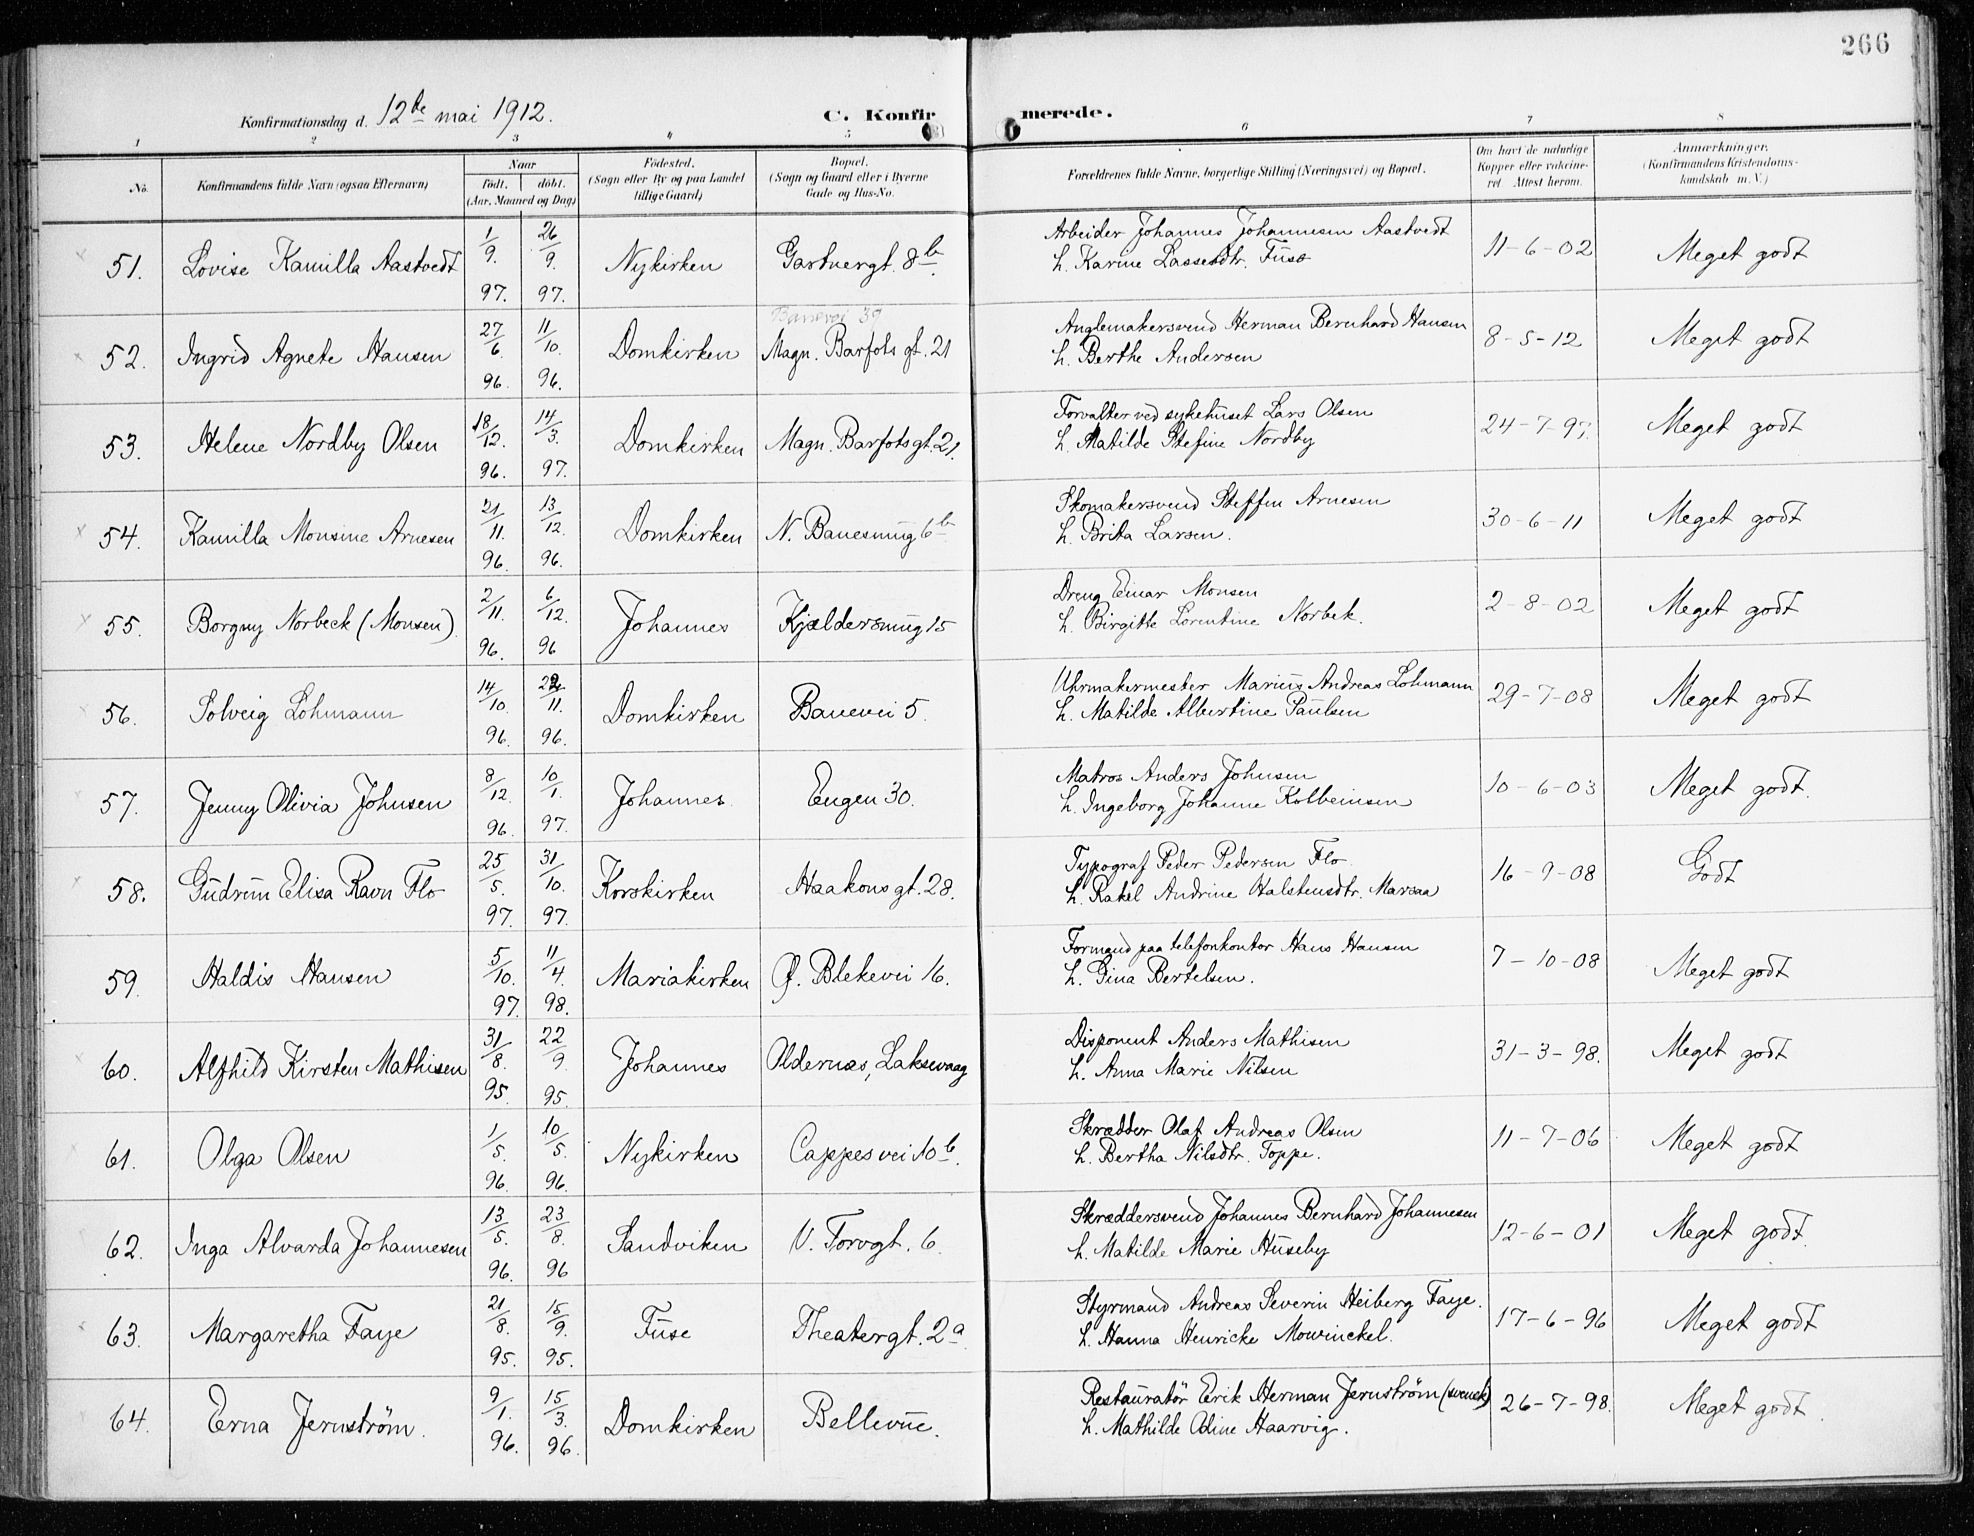 266
Konfirmationsdag d. 12te mai 1912.
C. Konfirmerede.
1 2 3 4 5 6 7 8
No. Konfirmandens fulde Navn (ogsaa Efternavn) Naar født. døbt. (Aar, Maaned og Dag) Fødested. (Sogn eller By og paa Landet tillige Gaard) Bopæl. (Sogn og Gaard eller i Byerne Gade og Hus-No. Forældrenes fulde Navne, borgerlige Stilling (Næringsvei) og Bopæl. Om havt de naturlige Kopper eller vakcineret Attest herom. Anmærkninger. (Konfirmandens Kristendomskundskab m. V.)
51. Lovise Kamilla Aastvedt 1/9. 97. 26/9. 97. Nykirken Gartnergt. 8b. Arbeider Johannes Johannesen Aastvedt
h. Karine Lassesdtr. Fuse 11-6-02 Meget godt
Banevei 39
52. Ingrid Agnete Hansen 27/6 96. 11/10. 96. Domkirken Magn. Barfots gt. 21 Anglemakersvend Herman Bernhard Hansen
h. Berthe Andersen 8-5-12 Meget godt
53. Helene Nordby Olsen 18/12. 96. 14/3. 97. Domkirken Magn. Barfotsgt. 21. Forvalter ved sykehuset Lars Olsen
h. Matilde Stefine Nordby 24-7-97. Meget godt
54. Kamilla Monsine Arnesen 21/11. 96. 13/12. 96. Domkirken N. Banesmug 6b Skomakersvend Steffen Arnesen
h. Brita Larsen. 30-6-11 Meget godt
55. Borgny Norbeck (Monsen). 2/11. 96. 6/12. 96 Johannes Kjældersmug 15 Dreng Einar Monsen
h. Birgitte Lorentine Norbek. 2-8-02 Meget godt
56. Solveig Lohmann 14/10. 96. 22/11. 96. Domkirken Banevei 5. Uhrmakermester Marius Andreas Lohmann
h. Matilde Albertine Paulsen 29-7-08 Meget godt
57. Jenny Olivia Johnsen 8/12. 96. 10/1. 97. Johannes. Engen 30. Matros Anders Johnsen
h. Ingeborg Johanne Kolbeinsen 10-6-03 Meget godt.
58. Gudrun Elisa Ravn Flo 25/5. 97. 31/10. 97. Korskirken Haakonsgt. 28. Typograf Peder Pedersen Flo.
h. Rakel Andrine Halstensdtr. Marsaa 16-9-08 Godt
59. Haldis Hansen 5/10. 97. 11/4. 98. Mariakirken Ø. Blekevei 16. Formand paa telefonkontor Hans Hansen
h. Gina Bertelsen. 7-10-08 Meget godt
60. Alfhild Kirsten Mathisen 31/8. 95. 22/9. 95. Johannes Oldernæs, Laksevaag Disponent Anders Mathisen
h. Anna Marie Nilsen 31-3-98. Meget godt
61. Olga Olsen 1/5. 96. 10/5. 96. Nykirken Cappesvei 10b. Skrædder Olaf Andreas Olsen
h. Bertha Nilsdtr. Toppe. 11-7-06 Meget godt
62. Inga Alvarda Johannesen 13/5. 96. 23/8. 96 Sandviken V. Torvgt. 6. Skræddersvend Johannes Bernhard Johannesen
h. Matilde Marie Huseby 12-6-01 Meget godt.
63. Margaretha Faye 21/8. 95. 15/9. 95. Fuse Theatergt. 2a Styrmand Andreas Severin Heiberg Faye.
h. Hanna Henricke Mowinckel. 17-6-96 Meget godt
64. Erna Jernström. 9/1. 96. 15/3. 96. Domkirken Bellevue. Restauratör Erik Herman Jernström (svensk)
h. Mathilde Odine Haarvig. 26-7-98. Meget godt.